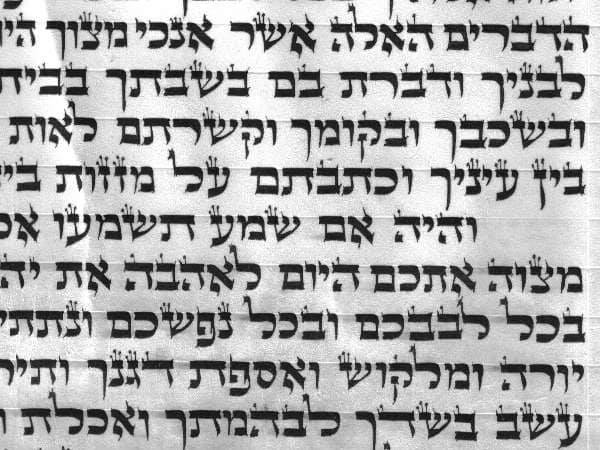 הדברים האלה אשר אנכי מצוך הי
לבניך ודברת בם בשבתך בבית
ובשכבך ובקומך וקשרתם לאות
בין עיניך וכתבתם על מזזות בי
והיה אם שמע תשמעו
מצוה אתכם היום לאהבה את יה
בכל לבבכם ובכל נפשכם ונתתי
יורה ומלקוש ואספת דגנך ותיר
עשב בשדך לבהמתך ואכלת ו